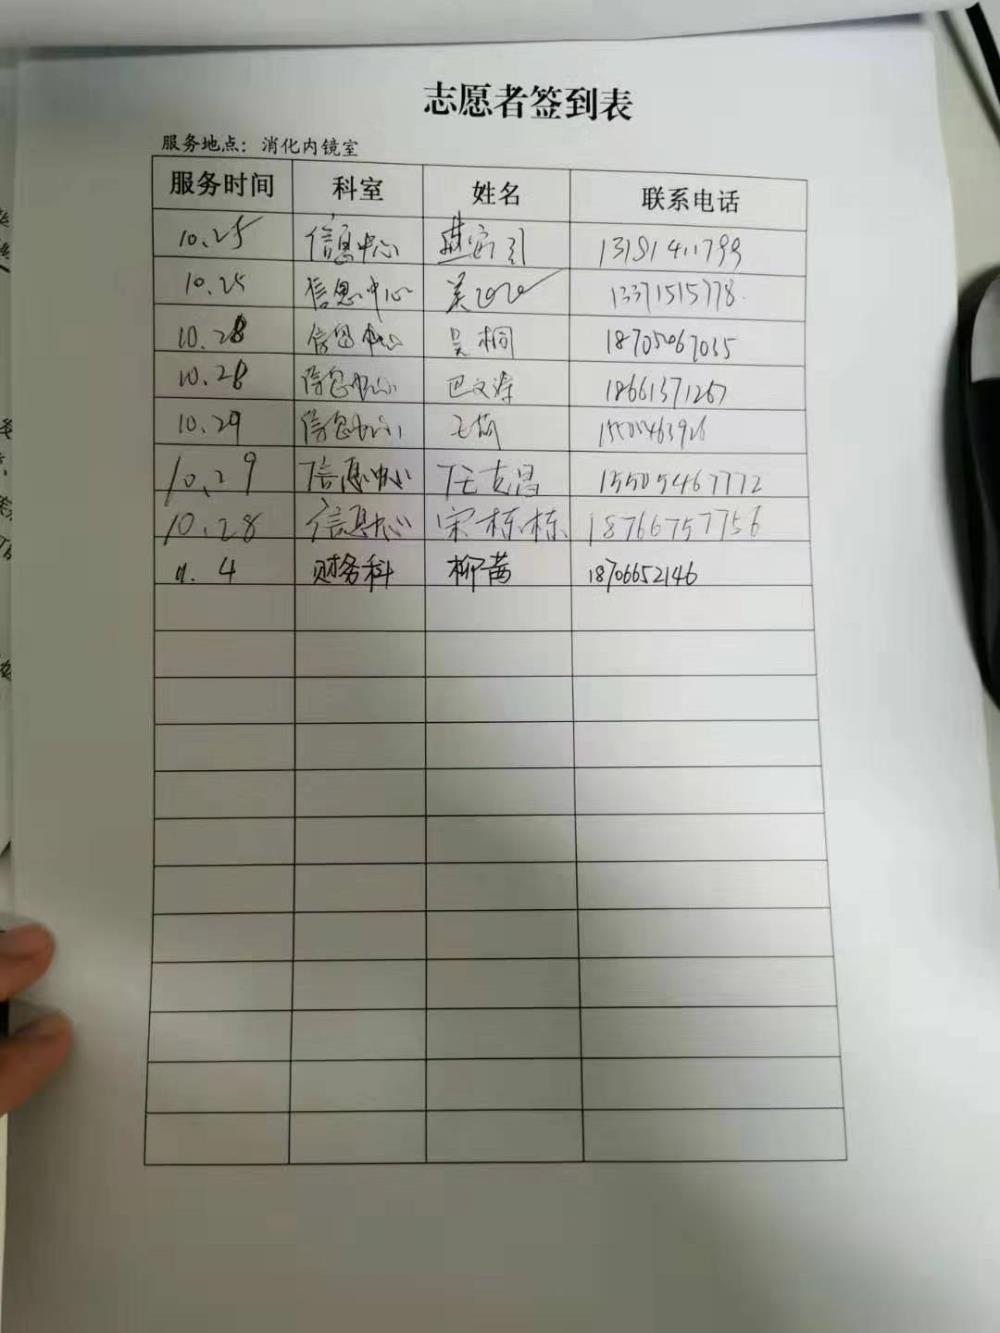 志愿者签到表
服务地点：消化内镜室
服务时间 科室 姓名 联系电话
10.25 信息中心
10.25 信息中心 13371515778
10.28 信息中心 吴桐 18705067035
10.28 信息中心 巴文涛 18661371267
10.29 信息中心
10.29 信息中心 任志昌 15505467772
10.28 信息中心 宋栋栋 18766757756
11.4 财务科 柳茜 18706652146